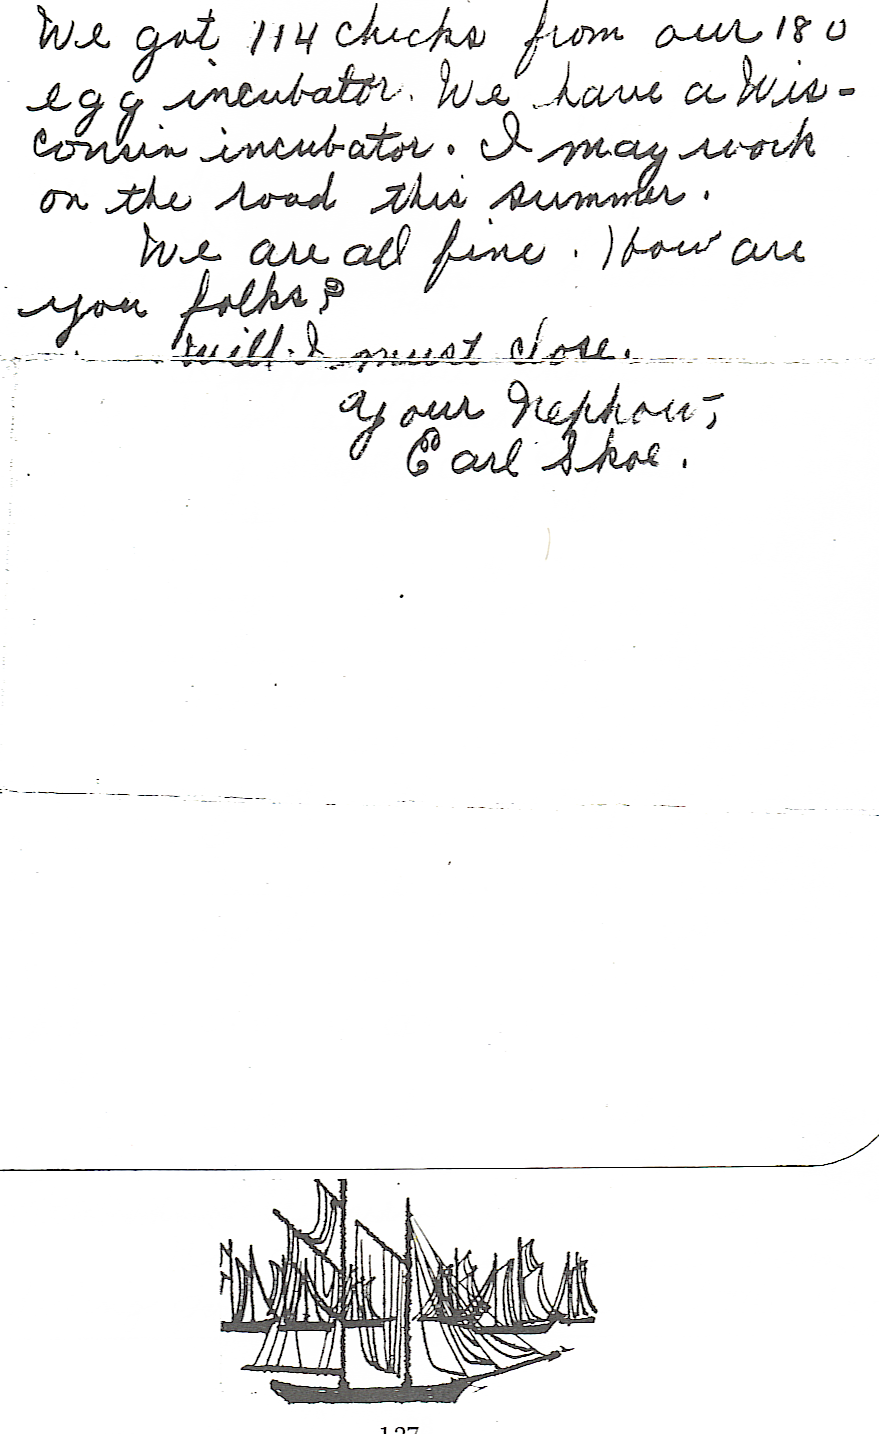 We got 114 chicks from our 180
egg incubator. We have a Wis-
consin incubator. I may work
on the road this summer.
We are all fine. How are
you folks?
Well I must close.
Your Nephew,
Earl Skoe.
127